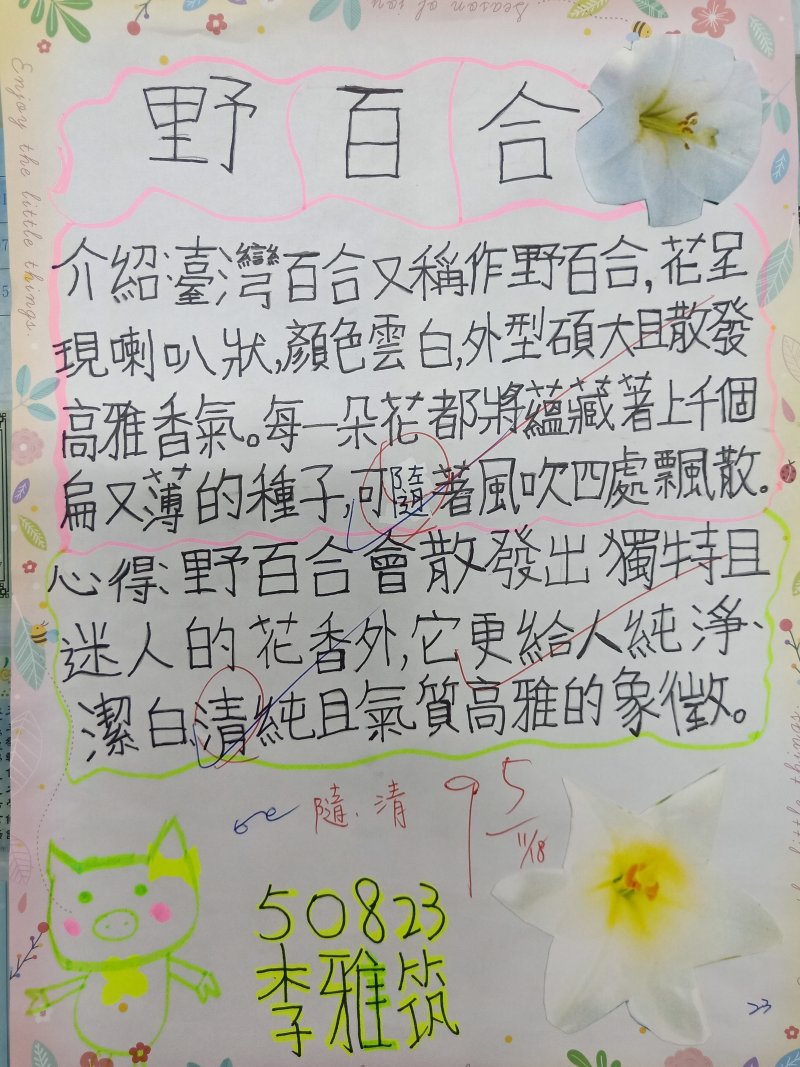 Season of you
Enjoy the little things
野百合
介紹:臺灣百合又稱作野百合,花呈
現喇叭狀,顏色雲白,外型碩大且散發
高雅香氣。每一朵花都將蘊藏著上千個
扁又薄的種子,可隨著風吹四處飄散。
心得:野百合會散發出獨特且
迷人的花香外,它更給人純淨、
潔白、清純且氣質高雅的象徵。
隨、清
95
11/18
50823
李雅筑
23